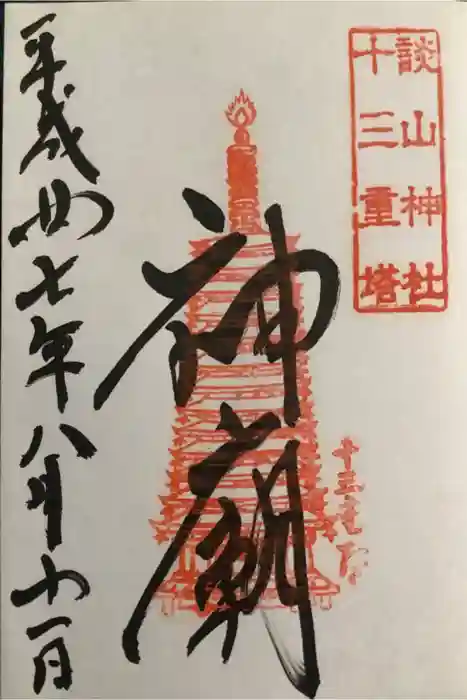 談山神社
十三重塔
神廟
平成廿七年八月廿一日